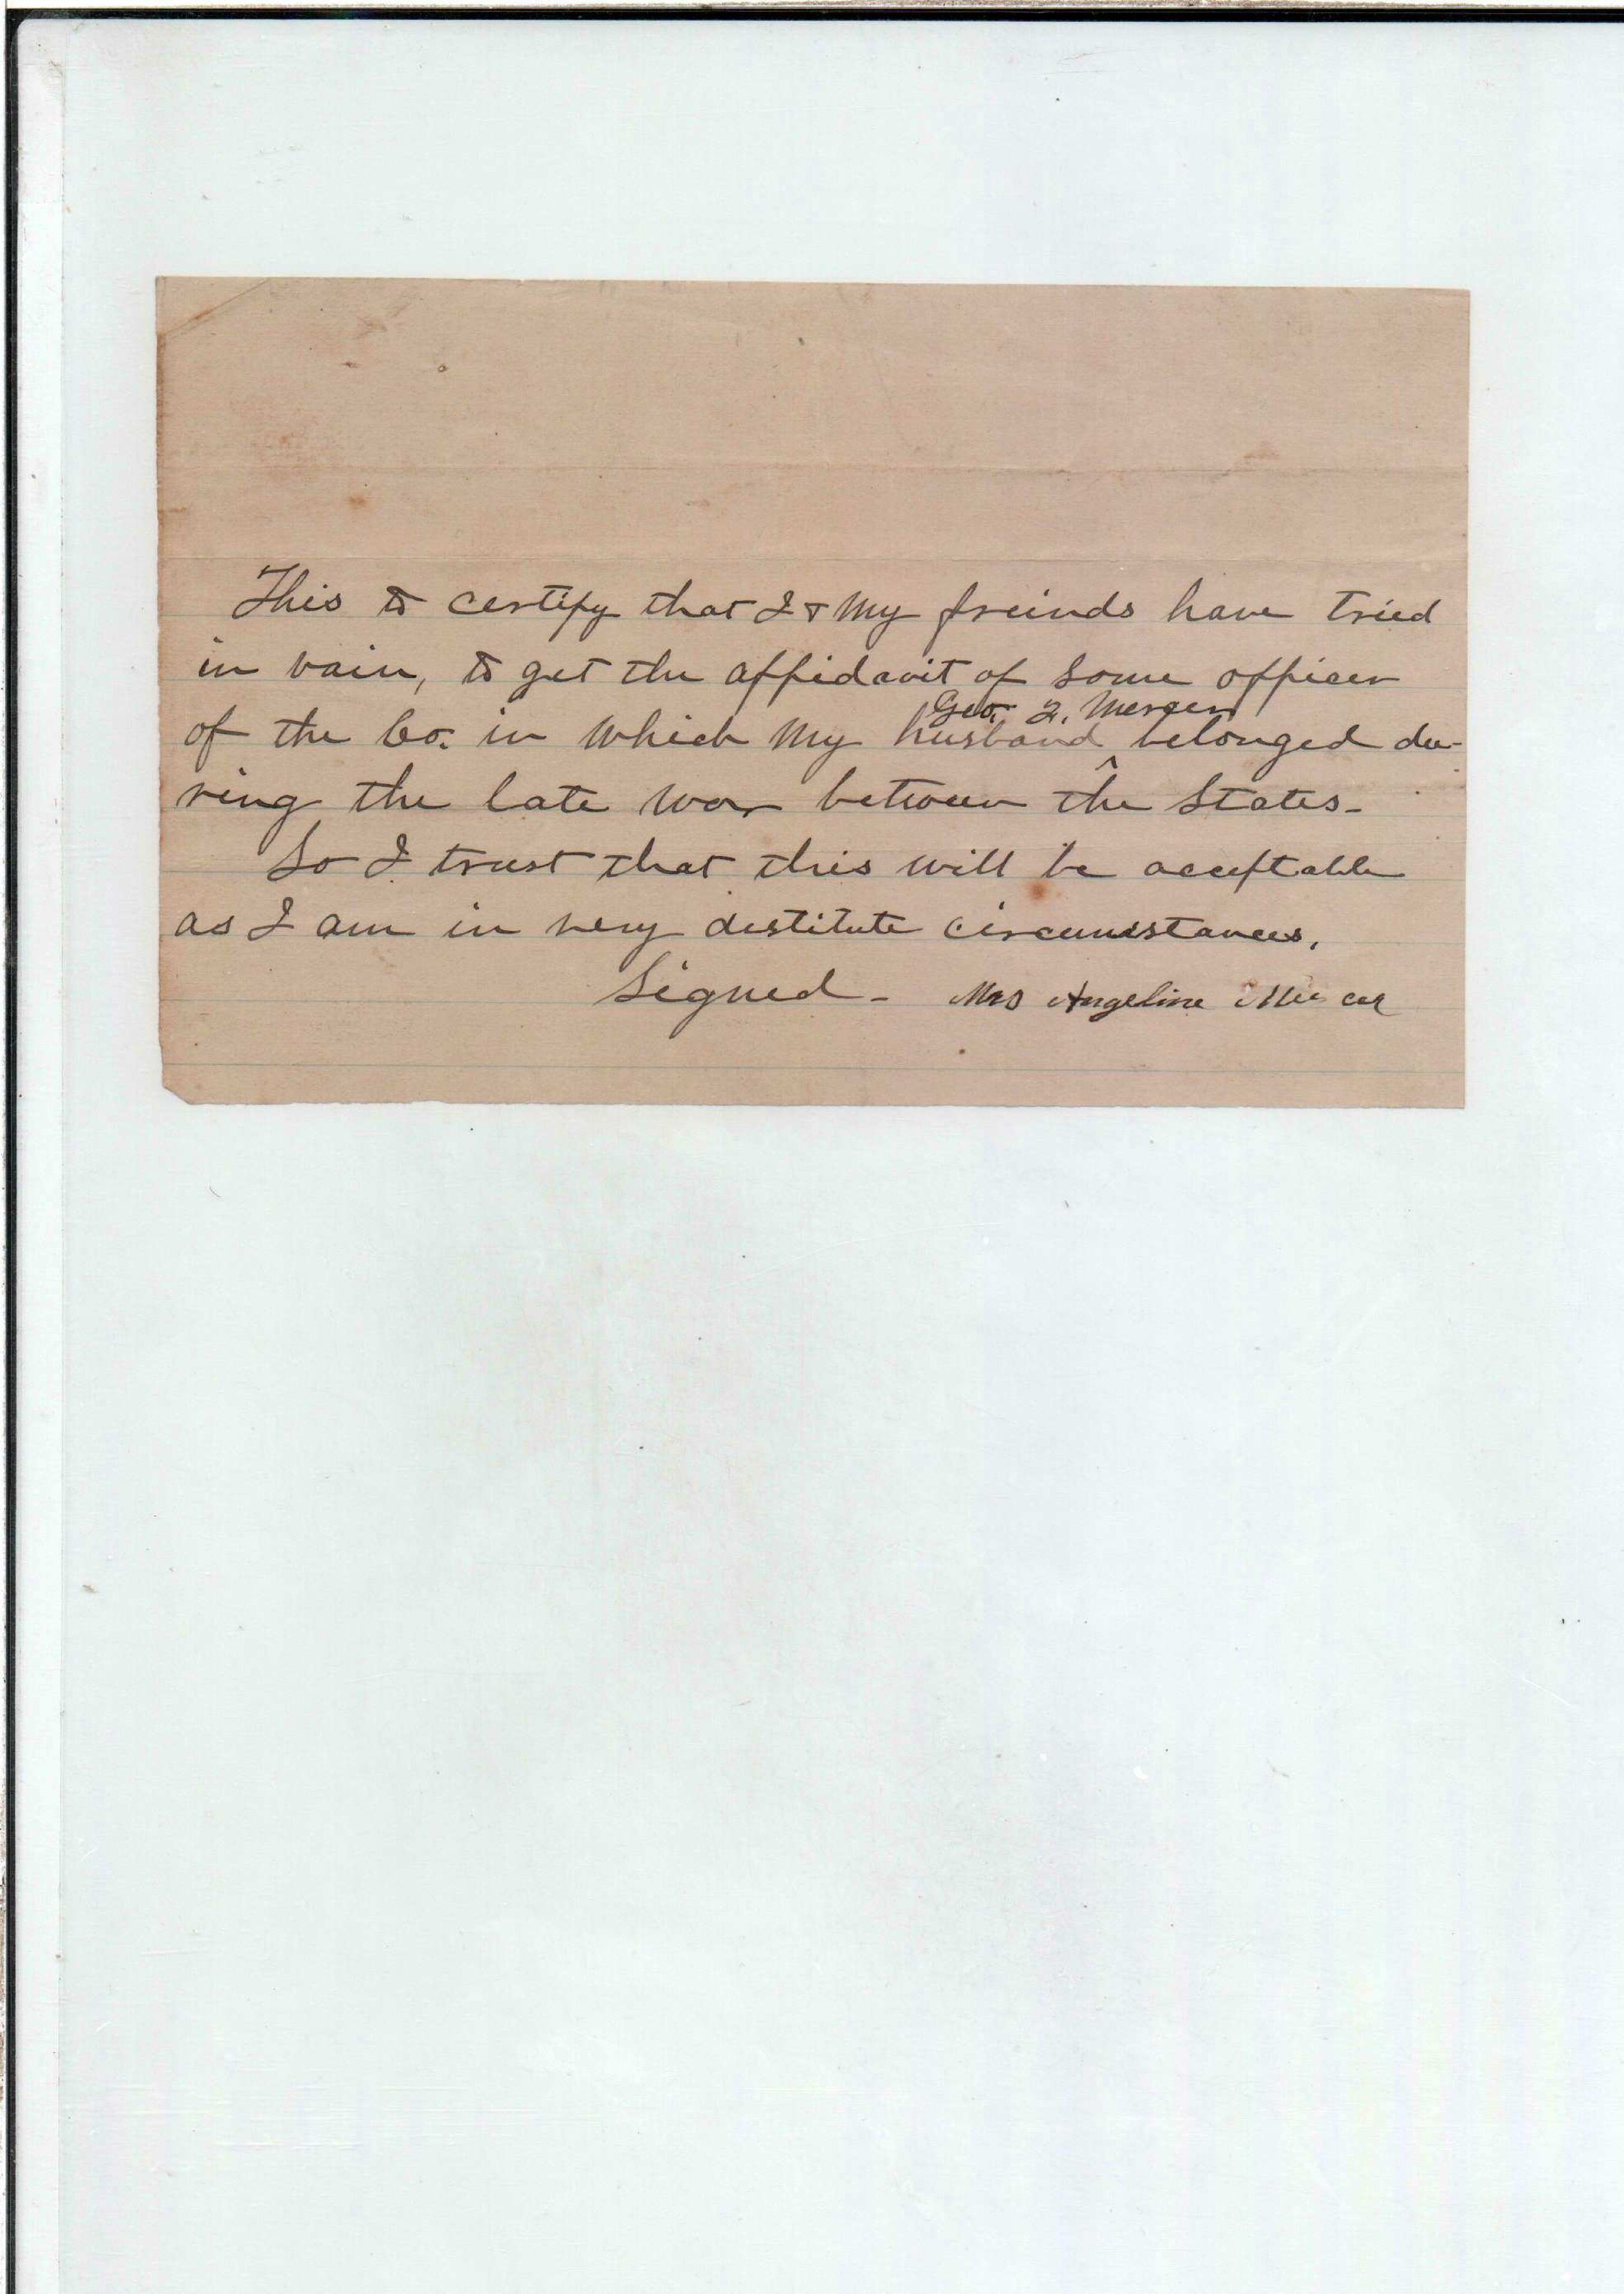 This to certify that I & my freinds have tried
in vain, to get the affidavit of some officer
Geo. Z. Mercer
of the Co. in which my husband ^ belonged du-
ring the late war between the States-
So I trust that this will be aceptable
as I am in very destitute circumstances.
Signed- Mrs Angeline Mercer